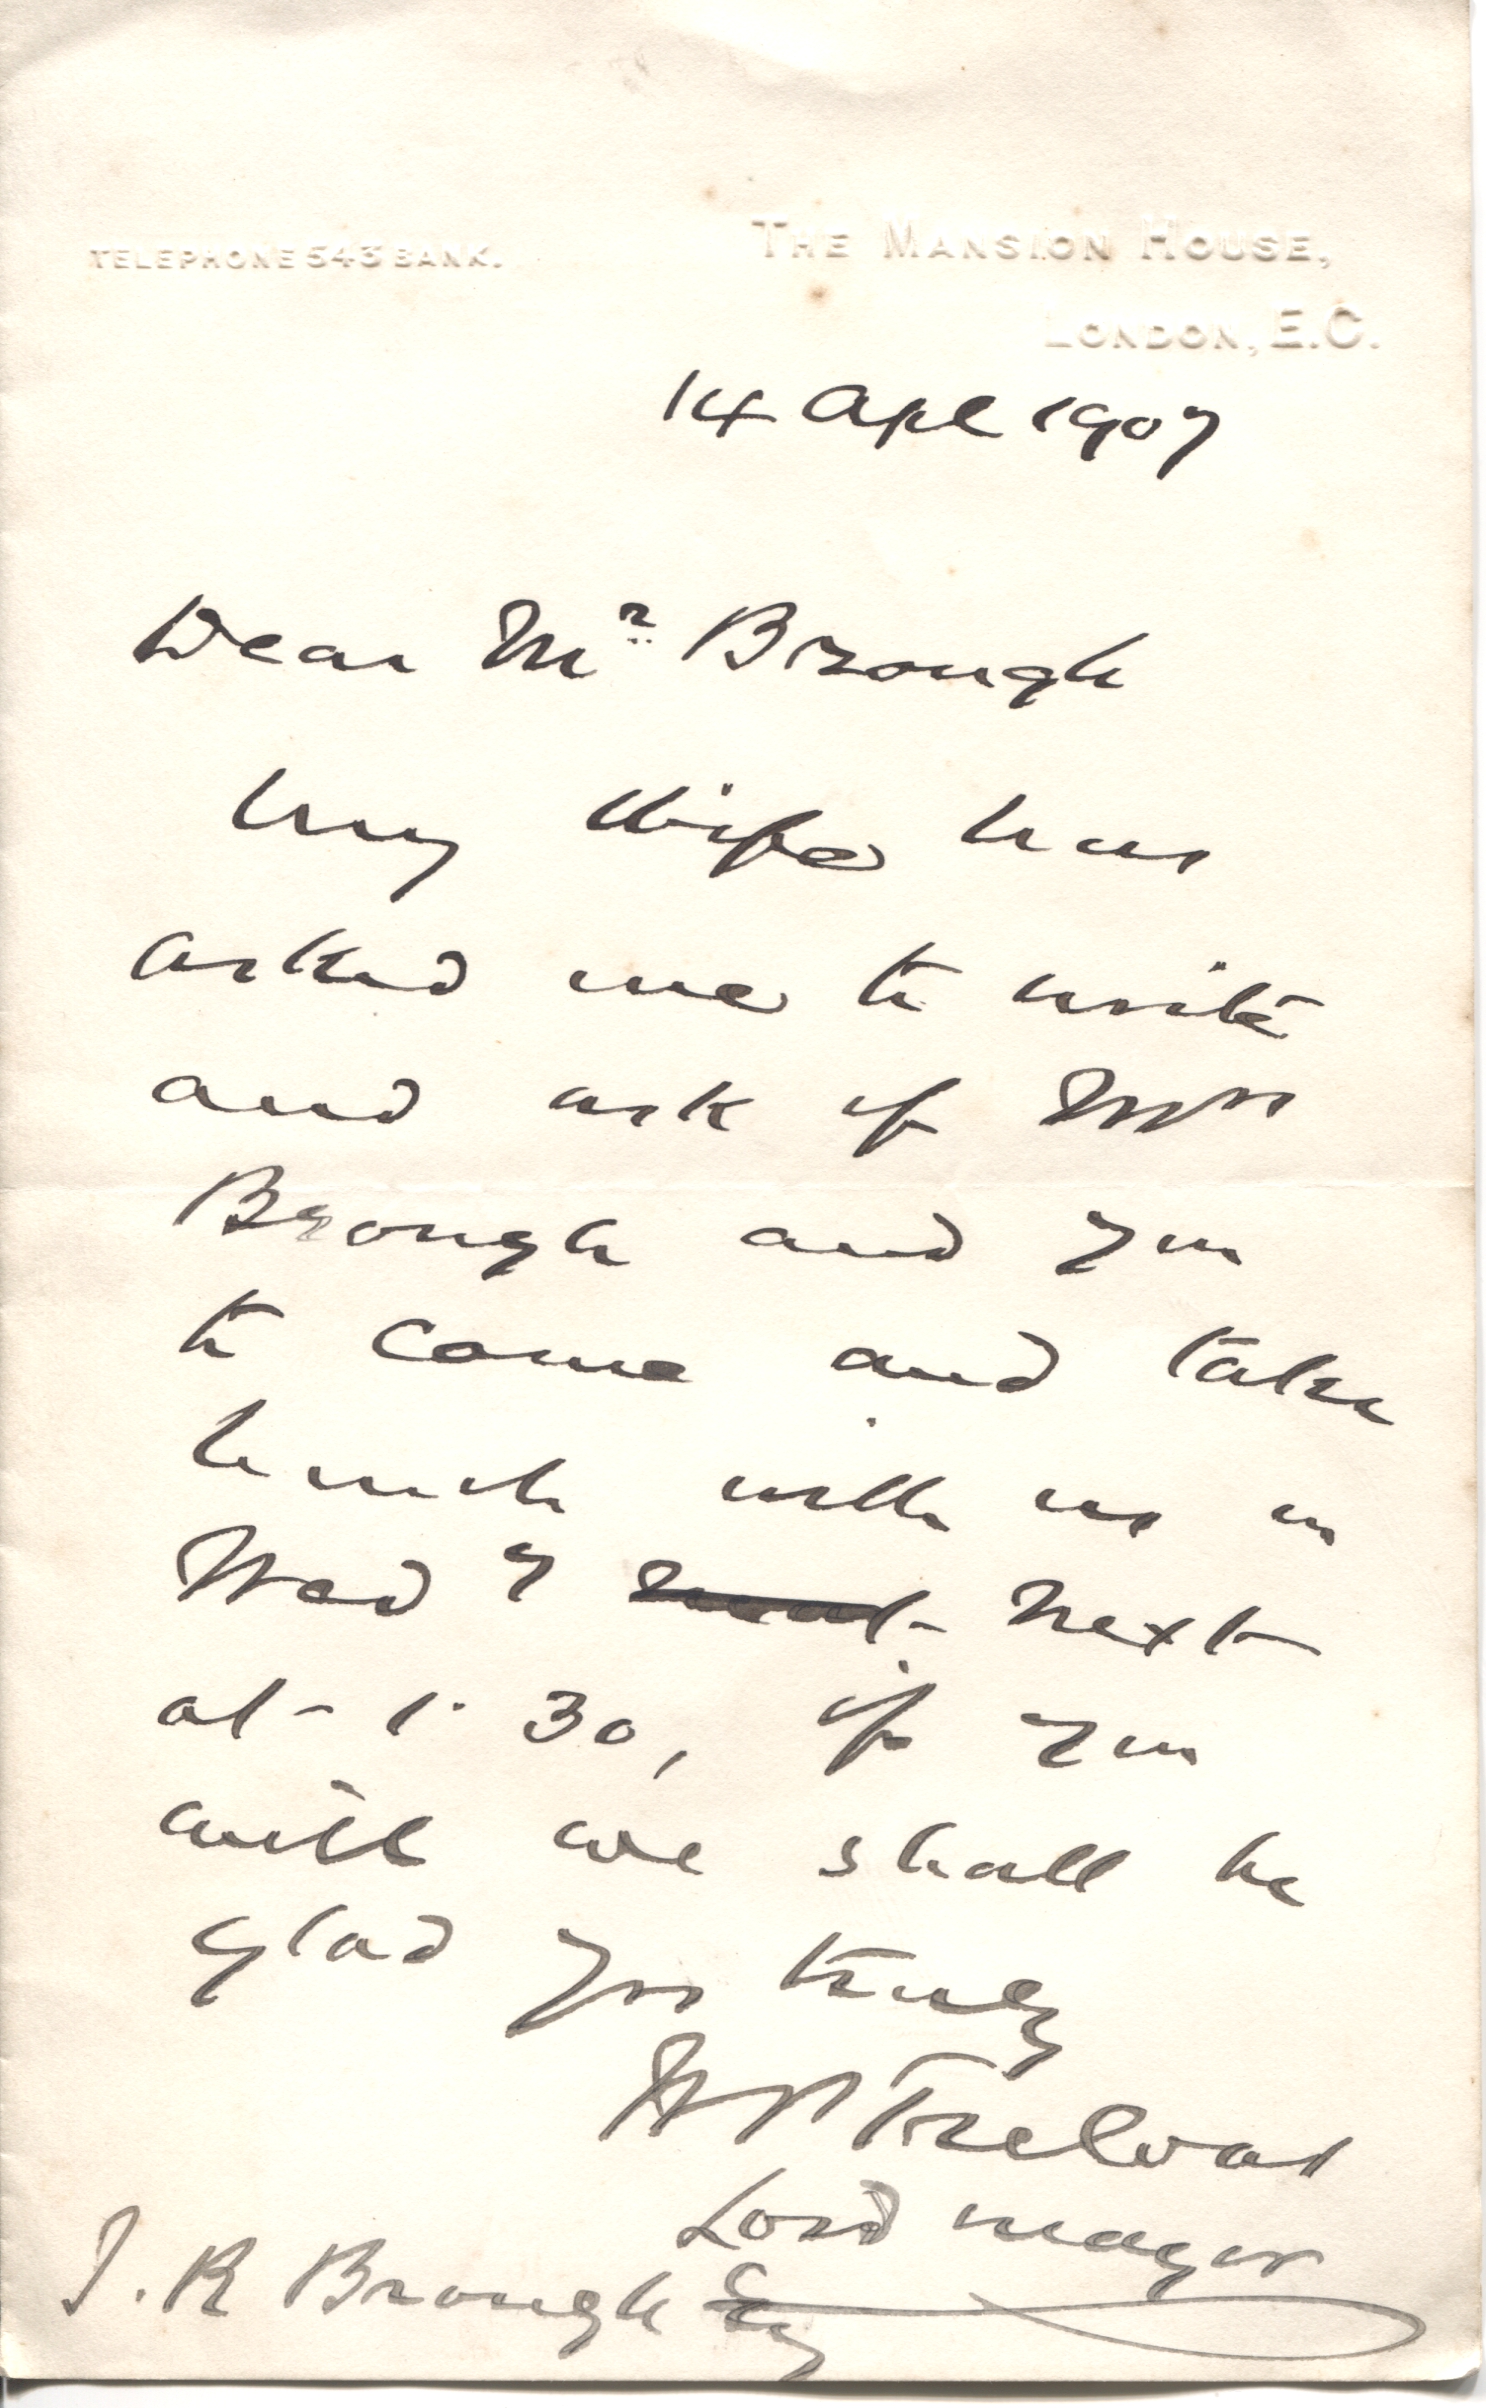 TELEPHONE 543 BANK.
THE MANSION HOUSE,
LONDON, E.C.
14 Apl 1907
Dear Mr Brough
My Wife has
asked me to write
and ask if Mrs
Brough and you
to come and take
lunch with us on
Wedy next
at 1.30, if you
will we shall be
glad Yrs truly
W P Treloar
Lord Mayor
J. R Brough Esq